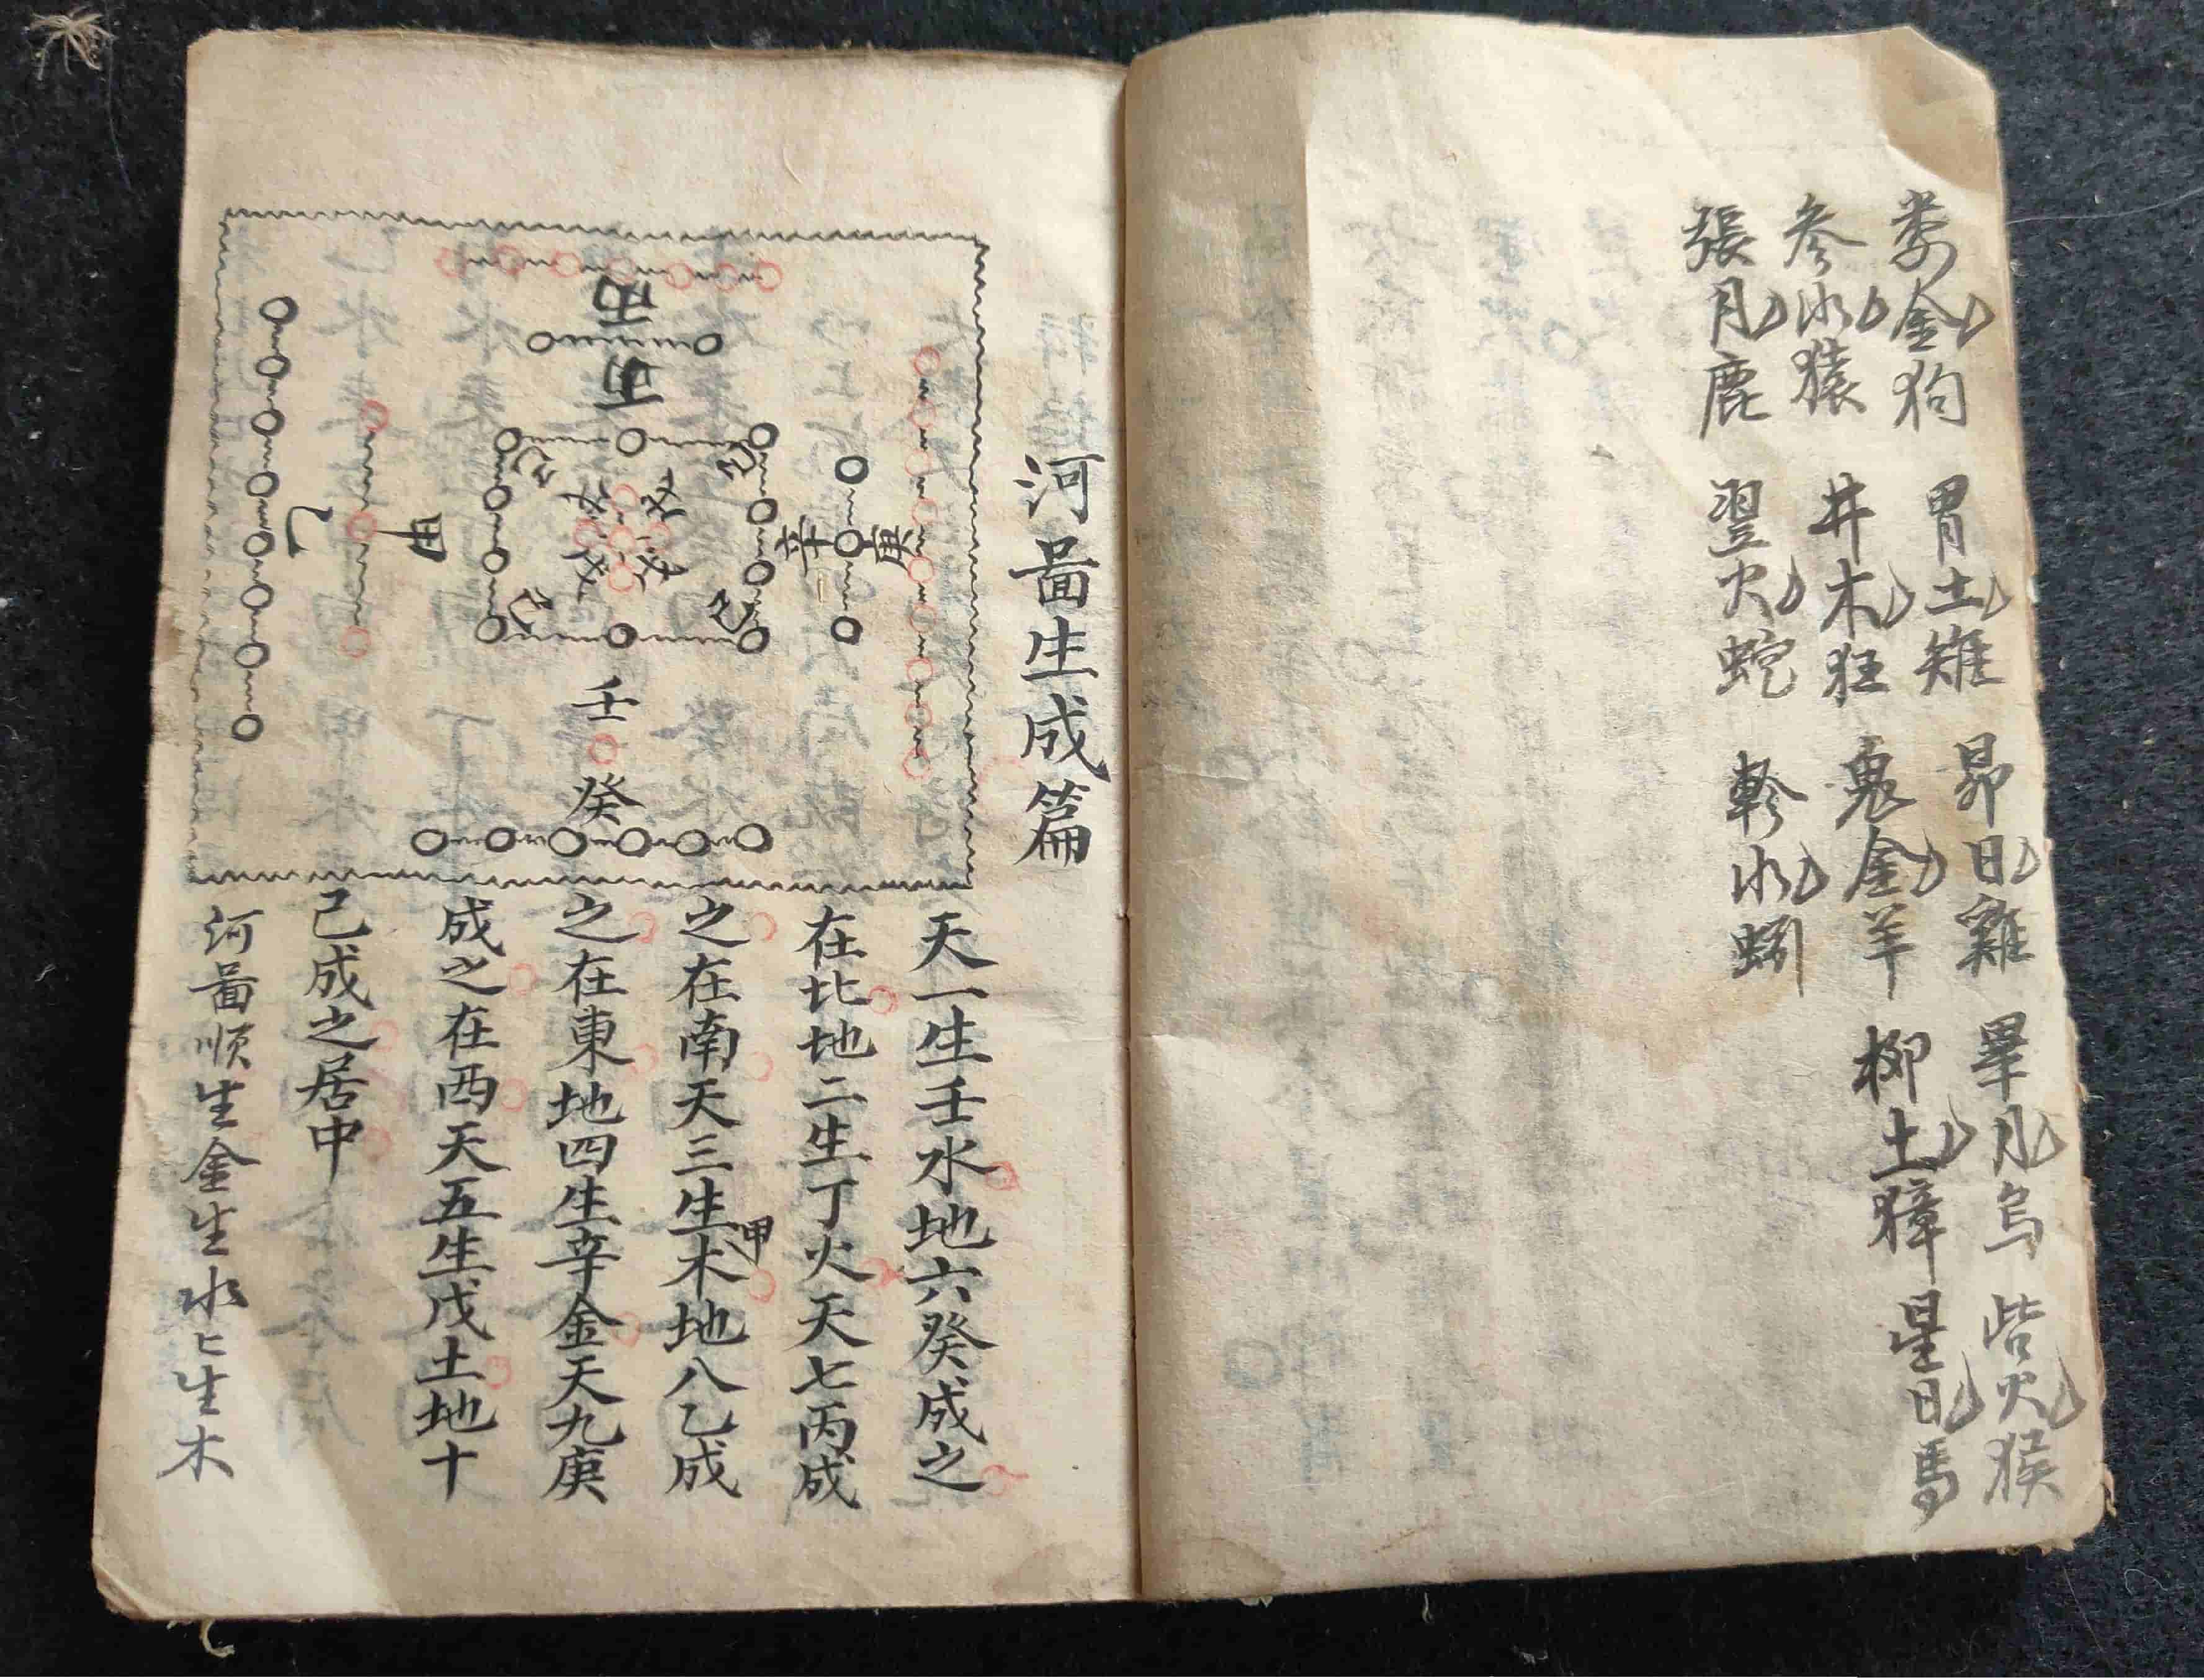 婁金狗 胃土雉 昴日雞 畢月烏 觜火猴
参水猿 井木犴 鬼金羊 柳土獐 星日馬
張月鹿 翌火蛇 軫水蚓
河啚生成篇
丙
丁
己 己
戊 戊
戊 戊
己 己
辛 庚
乙 甲
壬
癸
天一生壬水地六癸成之
在北地二生丁火天七丙成
之在南天三生甲木地八乙成
之在東地四生辛金天九庚
成之在西天五生戊土地十
己成之居中
河啚順生金生水匕生木